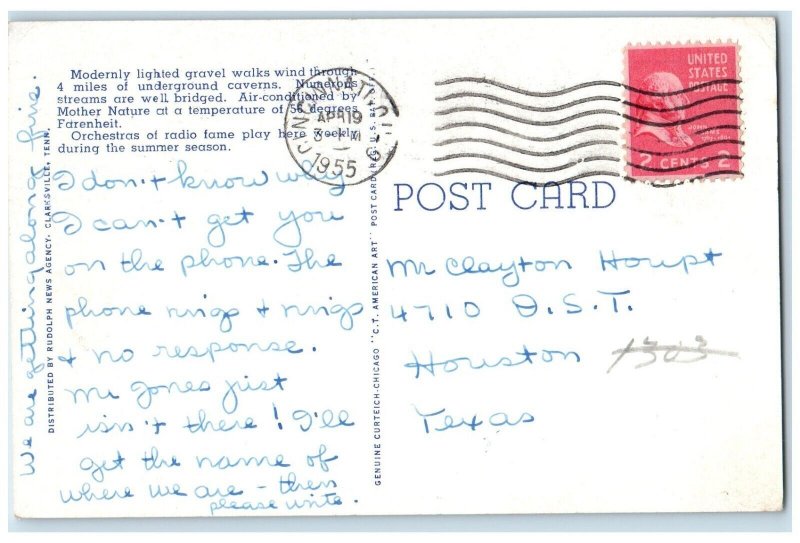 Modernly lighted gravel walks wind through
4 miles of underground caverns. Numerous
streams are well bridged. Air-conditioned by
Mother Nature at a temperature of 56 degrees
Farenheit.
Orchestras of radio fame play here weekly
during the summer season.
I don't know why
I can't get you
on the phone. The
phone rings & rings
& no response.
Mr Jones just
isn't there! I'll
get the name of
where we are - then
please write.
We are getting along fine.
DISTRIBUTED BY RUDOLPH NEWS AGENCY. CLARKSVILLE, TENN.
GENUINE CURTEICH-CHICAGO "C.T. AMERICAN ART" POST CARD (REG. U.S. PAT. OFF.)
CINCINNATI
APR 19
1955
UNITED
STATES
POSTAGE
JOHN
ADAMS
2 CENTS 2
POST CARD
Mr Clayton Houpt
4710 D.S.T.
Houston 1303
Texas